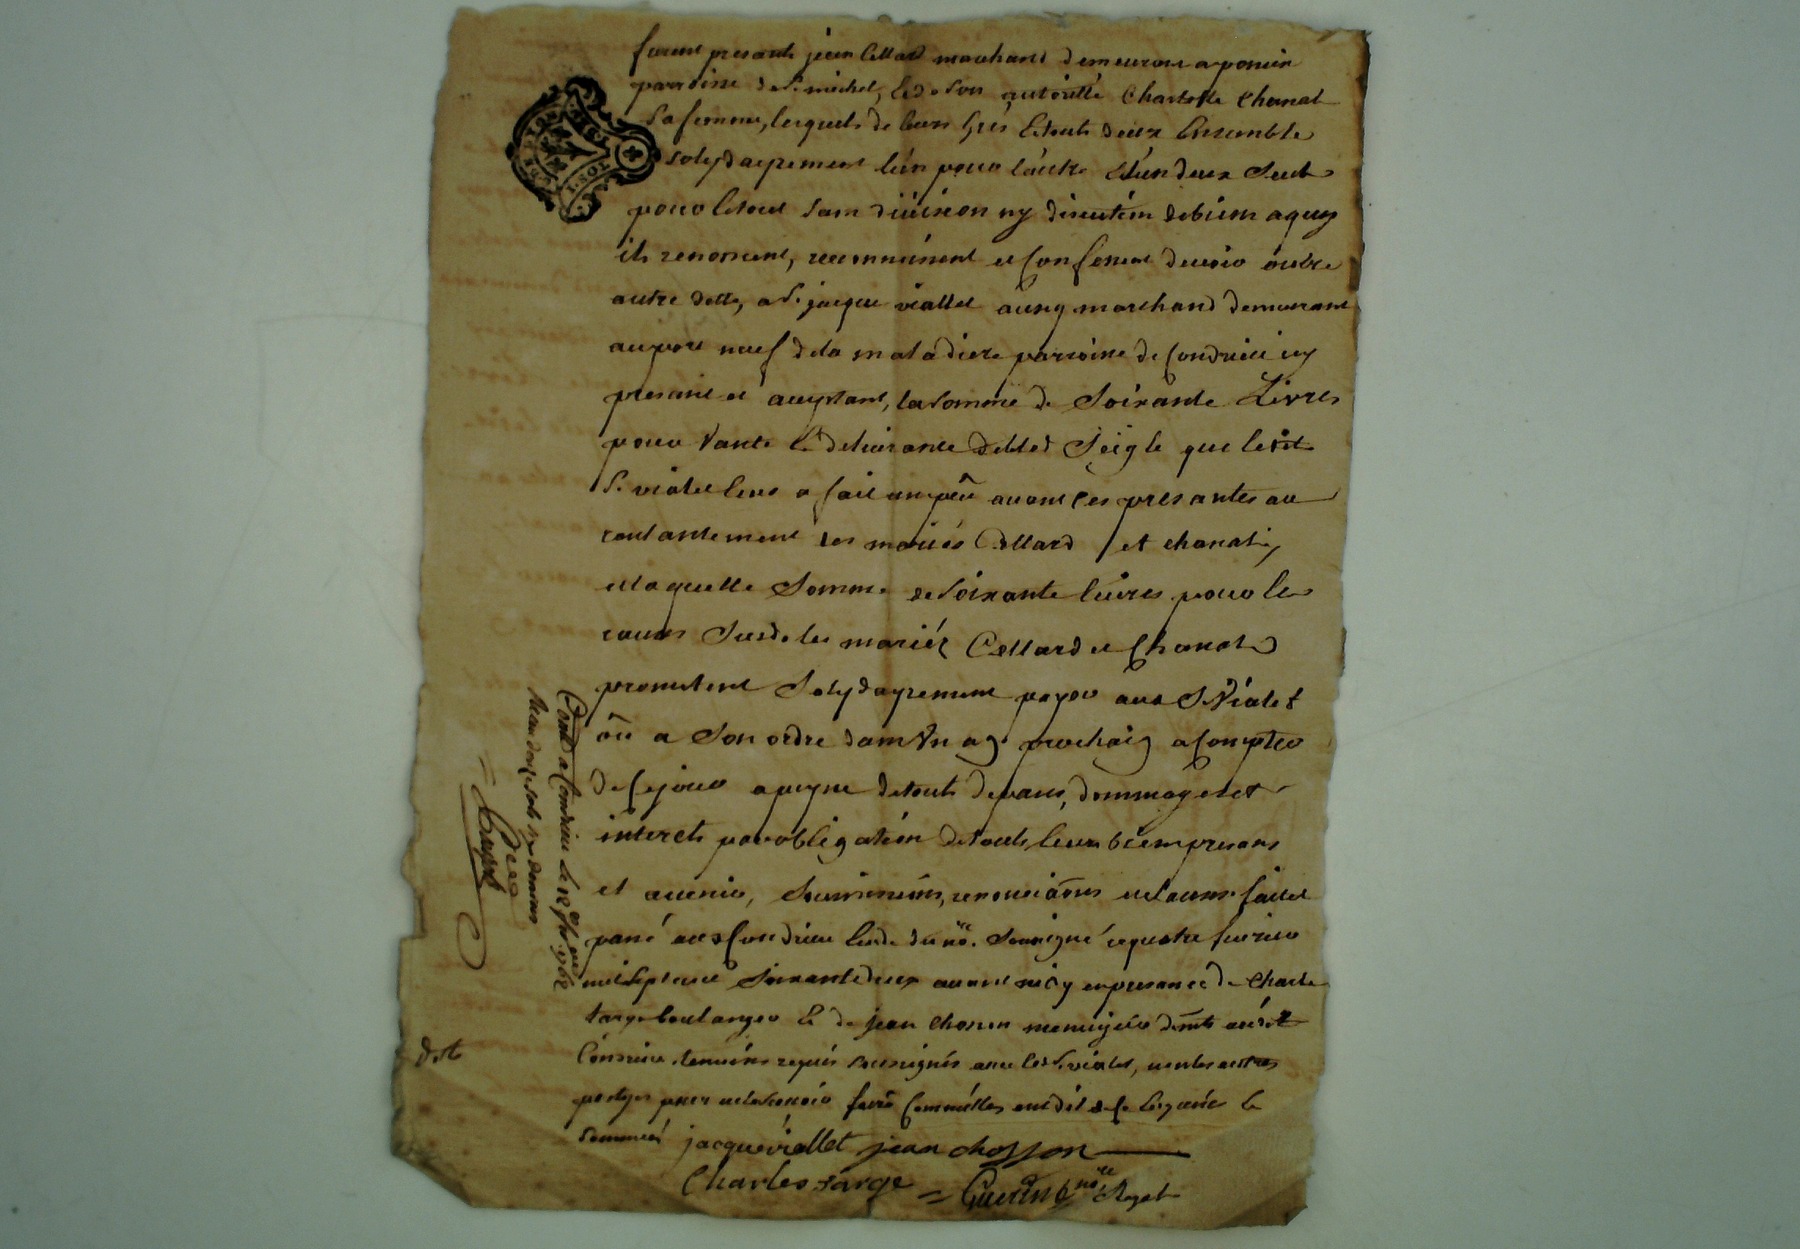 furent presants jean Cellard marchand demeurant a ponsin
parroisse de St michel, & de son autoritté Charlotte Chanal
sa femme, lesquels de leurs grés & touts deux Ensemble
solydayrement lun pour lautre & lun deux seul
pour le tout sans diuision ny discution de biens a quoy
ils renonsent, reconnoissent et Confessent deuoir outre
autre dette, a Sr jacque viallet ausy marchand demeurant
au port neuf de la maladiere parroisse de Condrieu icy
presant et acceptant, la somme de Soixante Livres
pour vante & deliurance de bled Seigle que ledit
Sr vialet leur a fait un peu auant ces presantes au
contantement des mariés Cellard et chanal,
et laquelle Somme de Soixante liures pour les
causes Susd. les mariés Cellard et Chanal
promettent Solydayrement payer aud Sr Vialet
ou a Son ordre dans Un an prochain a Compter
de Ce jour a peyne de touts depans, dommages et
interets par obligation de touts leurs biens presans
et auenir, Soumissions, renonciations et clauses fait et
passé aud Condrieu Etude du nre. Soussigné le quatre feurier
mil sept cent Soixante deux auant midy en presance de Charle
farge boulanger & de jean Chosson menuizier demts audit
Condrieu temoins requis soussignés auec led Sr vialet, non les autres
partyes pour ne le scauoir faire Comm'elles ont dit de Ce Enquis &
Sommées jacque viallet jean chosson
Charles farge = Guerin nre Royal
Contlé a Condrieu le 1762
Reçu sols deniers
dit